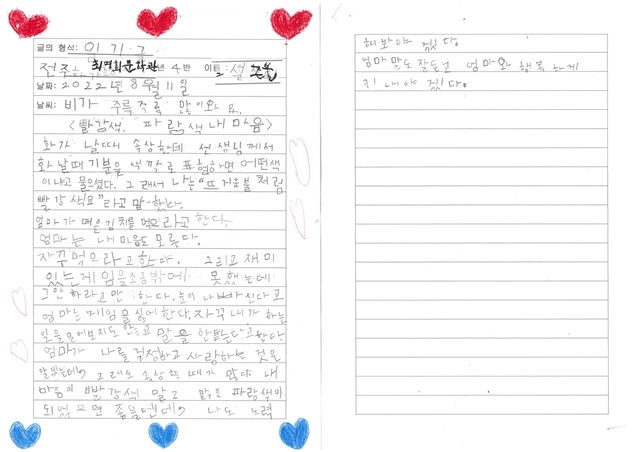 글의 형식: 일기
전주 최명희문학관 년 4반 이름:
날짜: 2022년 8월 11일
날씨: 비가 주륵주륵 많이 와요.
<빨강색. 파랑색 내 마음>
화가 날때 속상한데 선생님께서
화 날때 기분을 색깔로 표현하면 어떤색
이냐고 물으셨다. 그래서 나는 "뜨거운불처럼
빨강색요"라고 말했다.
엄마가 매운김치를 먹으라고 한다.
엄마는 내 마음도 모른다.
자꾸 먹으라고 한다. 그리고 재미
있는게임을 조금밖에 못했는데
그만하라고만 한다. 눈이 나빠진다고
엄마는 게임을 싫어한다. 자꾸 내가 하는
말을 안듣는다고 한다.
엄마가 나를 걱정하고 사랑하는 것을
알겠는데 그래도 속상할 때가 많다. 내
마음이 빨강색 말고 맑은 파랑색이
되었으면 좋을텐데 나도 노력
해 봐야 겠다.
엄마 말도 잘듣고 엄마와 행복하게
지내야 겠다.